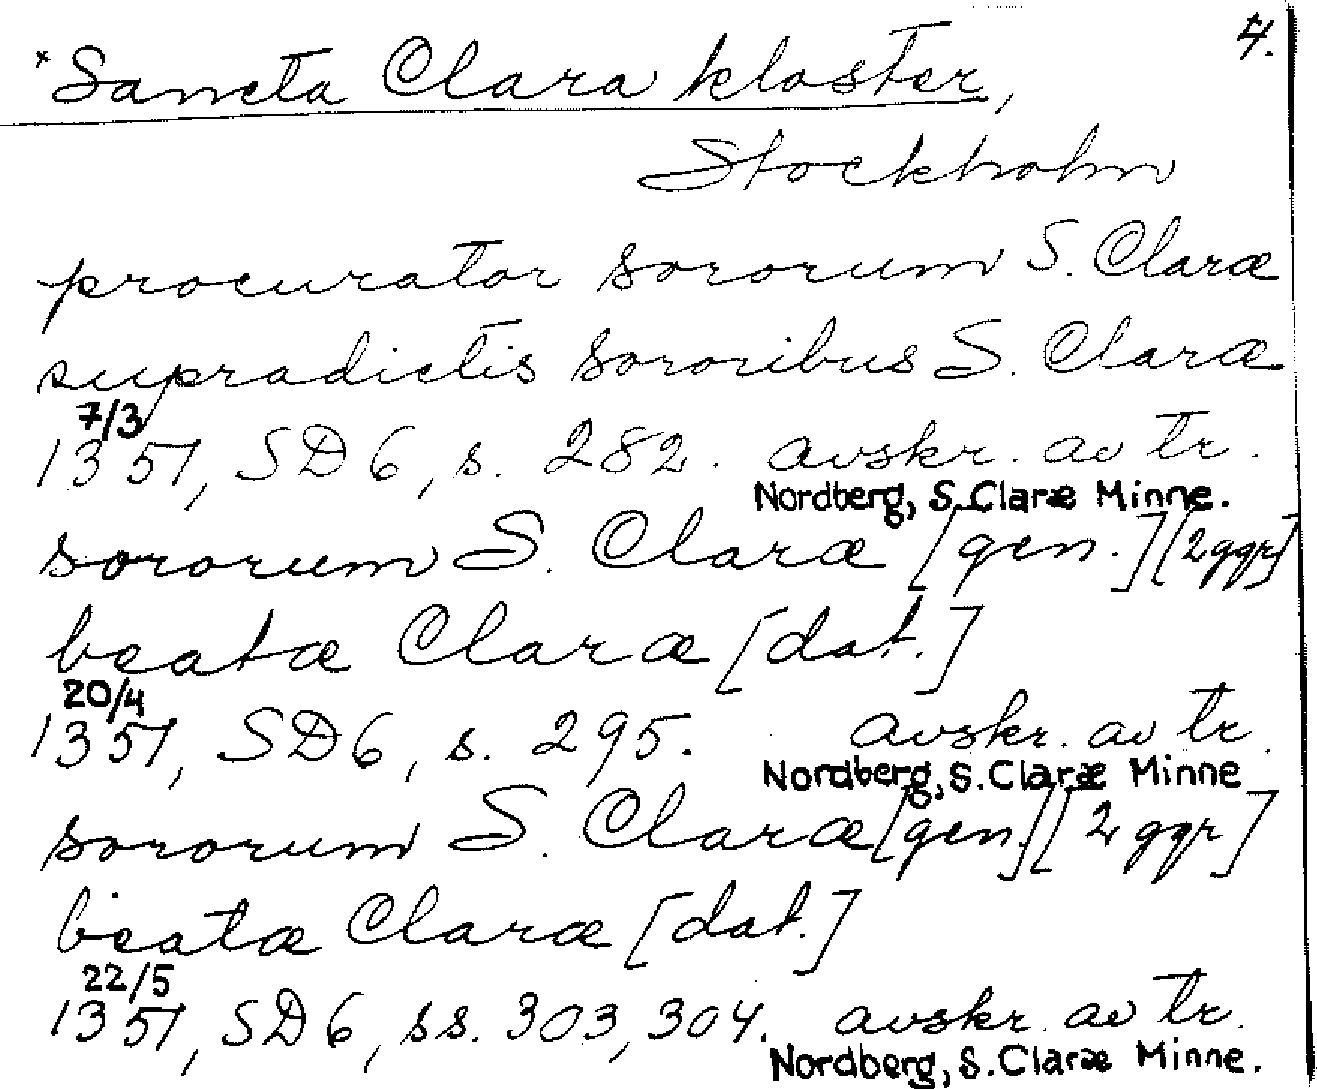 4.
*Sancta Clara kloster,
Stockholm
procurator sororum S. Claræ
supradictis sororibus S. Claræ
7/3
1351, SD 6, s. 282. avskr. av tr.
Nordberg, S. Claræ Minne.
sororum S. Claræ [gen.] [2 ggr]
beatæ Claræ [dat.]
20/4
1351, SD 6, s. 295. avskr. av tr.
Nordberg, S. Claræ Minne
sororum S. Claræ [gen.] [2 ggr]
beatæ Claræ [dat.]
22/5
1351, SD 6, ss. 303, 304. avskr. av tr.
Nordberg, S. Claræ Minne.